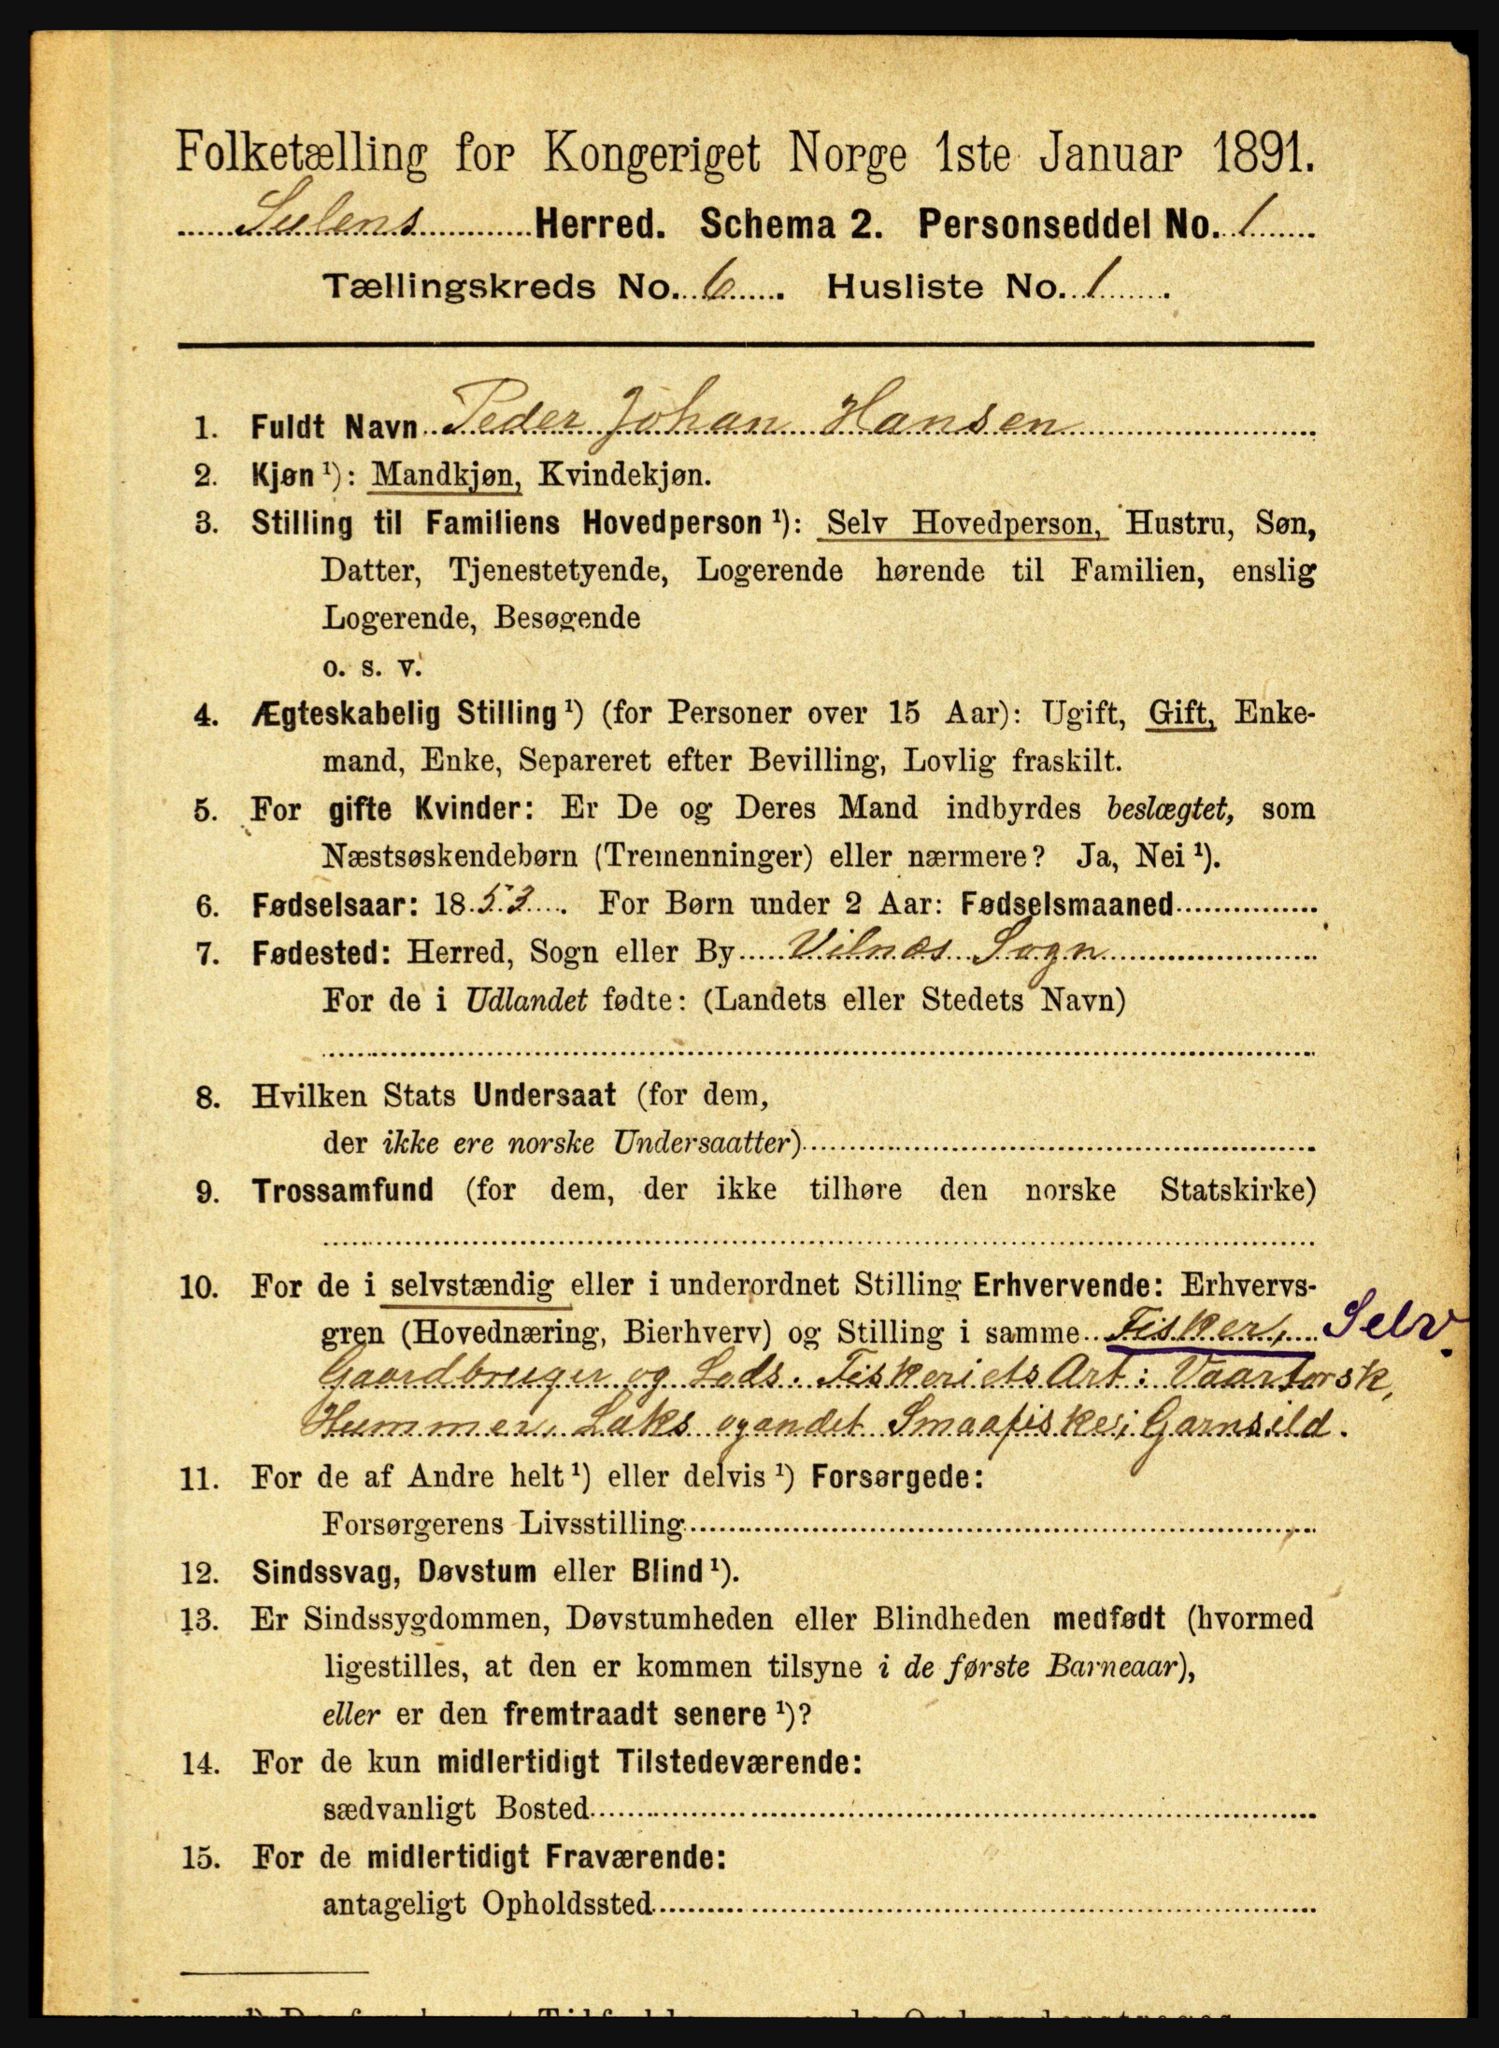 Folketælling for Kongeriget Norge 1ste Januar 1891.
Sulens Herred. Schema 2. Personseddel No. 1
Tællingskreds No. 6. Husliste No. 1.
1. Fuldt Navn Peder Johan Hansen
2. Kjøn ¹): Mandkjøn, Kvindekjøn.
3. Stilling til Familiens Hovedperson ¹): Selv Hovedperson, Hustru, Søn,
Datter, Tjenestetyende, Logerende hørende til Familien, enslig
Logerende, Besøgende
o. s. v.
4. Ægteskabelig Stilling ¹) (for Personer over 15 Aar): Ugift, Gift, Enke-
mand, Enke, Separeret efter Bevilling, Lovlig fraskilt.
5. For gifte Kvinder: Er De og Deres Mand indbyrdes beslægtet, som
Næstsøskendebørn (Tremenninger) eller nærmere? Ja, Nei ¹).
6. Fødselsaar: 1853. For Børn under 2 Aar: Fødselsmaaned
7. Fødested: Herred, Sogn eller By Vilnæs Sogn
For de i Udlandet fødte: (Landets eller Stedets Navn)
8. Hvilken Stats Undersaat (for dem,
der ikke ere norske Undersaatter)
9. Trossamfund (for dem, der ikke tilhøre den norske Statskirke)
10. For de i selvstændig eller i underordnet Stilling Erhvervende: Erhvervs-
gren (Hovednæring, Bierhverv) og Stilling i samme Fisker, Selv.
Gaardbruger og Lods. Fiskeriets Art: Vaartorsk,
Hummer, Laks og andet Smaafiske; Garnsild.
11. For de af Andre helt ¹) eller delvis ¹) Forsørgede:
Forsørgerens Livsstilling
12. Sindssvag, Døvstum eller Blind ¹).
13. Er Sindssygdommen, Døvstumheden eller Blindheden medfødt (hvormed
ligestilles, at den er kommen tilsyne i de første Barneaar),
eller er den fremtraadt senere ¹)?
14. For de kun midlertidigt Tilstedeværende:
sædvanligt Bosted
15. For de midlertidigt Fraværende:
antageligt Opholdssted